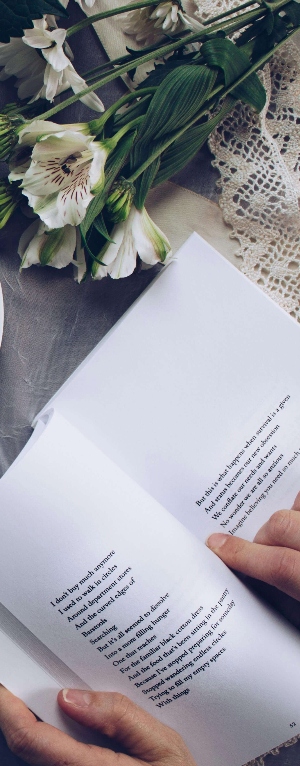 I don't buy much anymore
I used to walk in circles
Around department stores
And the curved edges of
Barstools
Searching
But it's all seemed to dissolve
Into a more filling hunger
One that reaches
For the familiar black cotton dress
And the food that's been sitting in the pantry
Because I've stopped preparing for someday
Stopped wandering endless circles
Trying to fill my empty spaces
With things
52
But this is what happens when survival is a given
And status becomes our new obsession
We conflate our needs and wants
No wonder we are all so anxious
Imagine believing you need so much